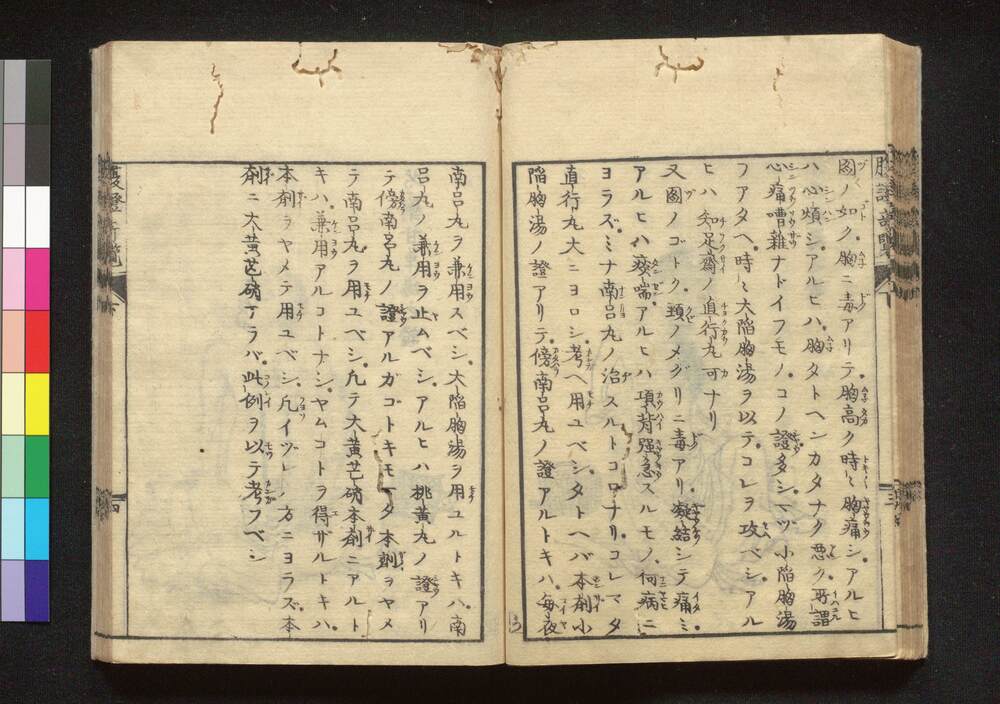 圖ノ如ク胸ニ毒アリテ胸高ク時々胸痛シ。アルヒ
ハ心煩シ。アルヒハ胸タトヘンカタナク悪ク。所謂
心痛嘈雜ナドイフモノ。コノ證多シ。一ツ小陥胸湯
フアタヘ。時々大陥胸湯ヲ以テ。コレヲ攻ベシ。アル
ヒハ知足齋ノ直行丸可ナリ
又圖ノゴトク。頸ノメグリニ毒アリ。凝結シテ痛ミ。
アルヒハ痰喘アルヒハ項背强急スルモノ。何病ニ
ヨラズ。ミナ南呂丸ノ治スルトコロナリ。コレマタ
直行丸大ニヨロシ。考ヘ用ユベシ。タトヘバ本剤小
陥胸湯ノ證アリテ。傍南呂丸ノ證アルトキハ。毎夜
南呂丸ヲ兼用スベシ。大陥胸湯ヲ用ユルトキハ。南
呂丸ノ兼用ヲ止ムベシ。アルヒハ桃黄丸ノ證アリ
テ傍南呂丸ノ證アルガゴトキモ。マタ本剤ヲヤメ
テ南呂丸ヲ用ユベシ。凡テ大黄芒硝本剤ニアルト
キハ。兼用アルコトナシ。ヤムコトヲ得ザルトキハ
本剤ヲヤメテ用ユベシ。凡イヅレノ方ニヨラズ。本
剤ニ大黄芒硝アラバ。此例ヲ以テ考フベシ